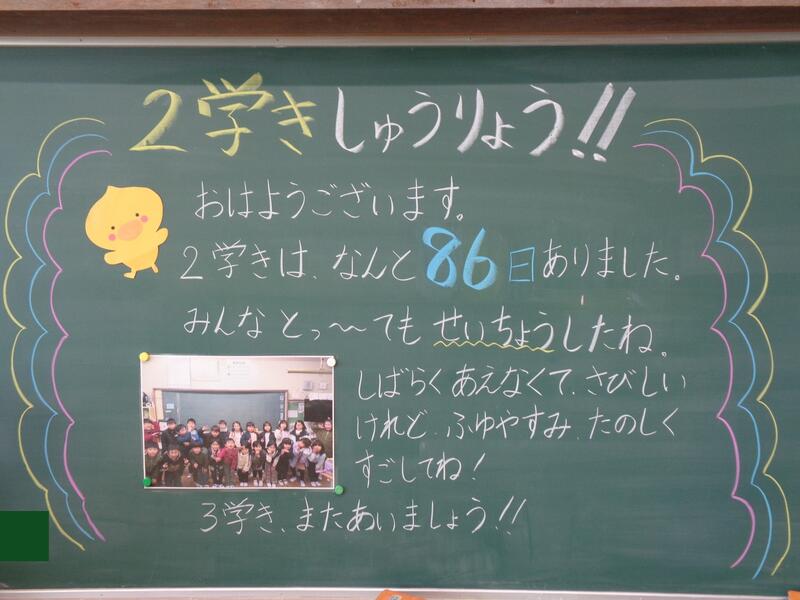 2学きしゅうりょう!!
おはようございます。
2学きは、なんと86日ありました。
みんなとっ〜てもせいちょうしたね。
しばらくあえなくて、さびしい
けれど、ふゆやすみ、たのしく
すごしてね!
3学き、またあいましょう!!